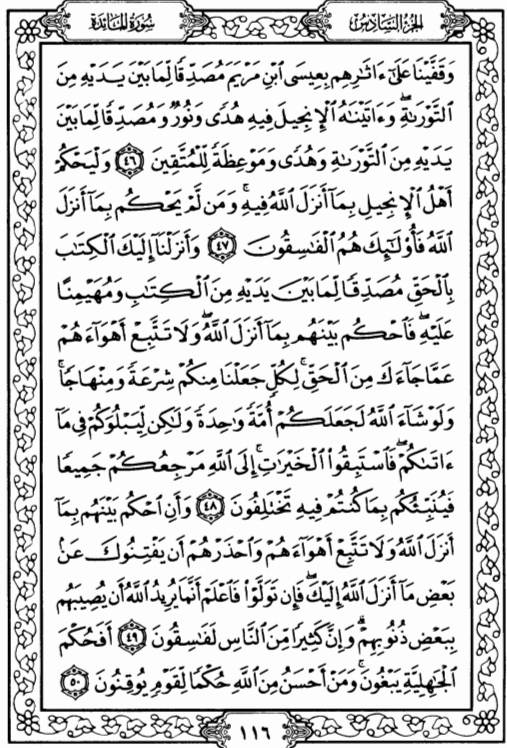 سُورَةُ المَائِدَةِ
الجُزْءُ السَّادِسُ
وَقَفَّيْنَا عَلَىٰٓ ءَاثَٰرِهِم بِعِيسَى ٱبْنِ مَرْيَمَ مُصَدِّقًا لِّمَا بَيْنَ يَدَيْهِ مِنَ
ٱلتَّوْرَىٰةِۖ وَءَاتَيْنَٰهُ ٱلْإِنجِيلَ فِيهِ هُدًى وَنُورٌ وَمُصَدِّقًا لِّمَا بَيْنَ
يَدَيْهِ مِنَ ٱلتَّوْرَىٰةِ وَهُدًى وَمَوْعِظَةً لِّلْمُتَّقِينَ ٤٦ وَلْيَحْكُمْ
أَهْلُ ٱلْإِنجِيلِ بِمَآ أَنزَلَ ٱللَّهُ فِيهِۚ وَمَن لَّمْ يَحْكُم بِمَآ أَنزَلَ
ٱللَّهُ فَأُو۟لَٰٓئِكَ هُمُ ٱلْفَٰسِقُونَ ٤٧ وَأَنزَلْنَآ إِلَيْكَ ٱلْكِتَٰبَ
بِٱلْحَقِّ مُصَدِّقًا لِّمَا بَيْنَ يَدَيْهِ مِنَ ٱلْكِتَٰبِ وَمُهَيْمِنًا
عَلَيْهِۖ فَٱحْكُم بَيْنَهُم بِمَآ أَنزَلَ ٱللَّهُۖ وَلَا تَتَّبِعْ أَهْوَآءَهُمْ
عَمَّا جَآءَكَ مِنَ ٱلْحَقِّۚ لِكُلٍّ جَعَلْنَا مِنكُمْ شِرْعَةً وَمِنْهَاجًاۚ
وَلَوْ شَآءَ ٱللَّهُ لَجَعَلَكُمْ أُمَّةً وَٰحِدَةً وَلَٰكِن لِّيَبْلُوَكُمْ فِى مَآ
ءَاتَىٰكُمْۖ فَٱسْتَبِقُوا۟ ٱلْخَيْرَٰتِۚ إِلَى ٱللَّهِ مَرْجِعُكُمْ جَمِيعًا
فَيُنَبِّئُكُم بِمَا كُنتُمْ فِيهِ تَخْتَلِفُونَ ٤٨ وَأَنِ ٱحْكُم بَيْنَهُم بِمَآ
أَنزَلَ ٱللَّهُ وَلَا تَتَّبِعْ أَهْوَآءَهُمْ وَٱحْذَرْهُمْ أَن يَفْتِنُوكَ عَنۢ
بَعْضِ مَآ أَنزَلَ ٱللَّهُ إِلَيْكَۖ فَإِن تَوَلَّوْا۟ فَٱعْلَمْ أَنَّمَا يُرِيدُ ٱللَّهُ أَن يُصِيبَهُم
بِبَعْضِ ذُنُوبِهِمْۗ وَإِنَّ كَثِيرًا مِّنَ ٱلنَّاسِ لَفَٰسِقُونَ ٤٩ أَفَحُكْمَ
ٱلْجَٰهِلِيَّةِ يَبْغُونَۚ وَمَنْ أَحْسَنُ مِنَ ٱللَّهِ حُكْمًا لِّقَوْمٍ يُوقِنُونَ ٥٠
١١٦